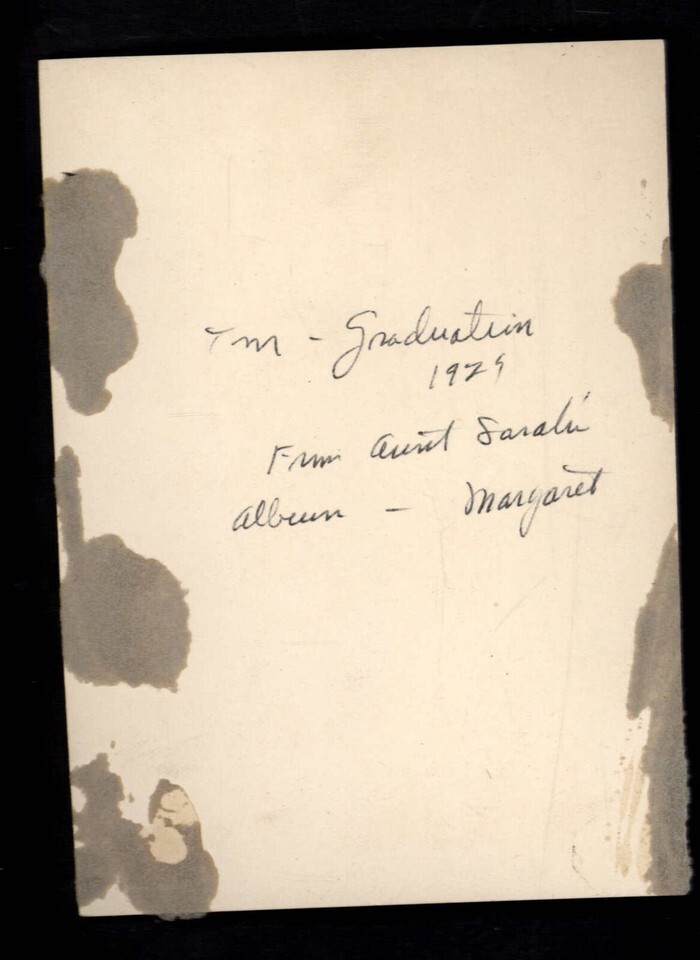 Graduation
192
From Aunt Sarah
Album - Margaret